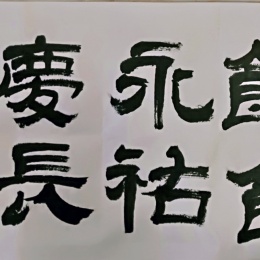 永祐
慶長